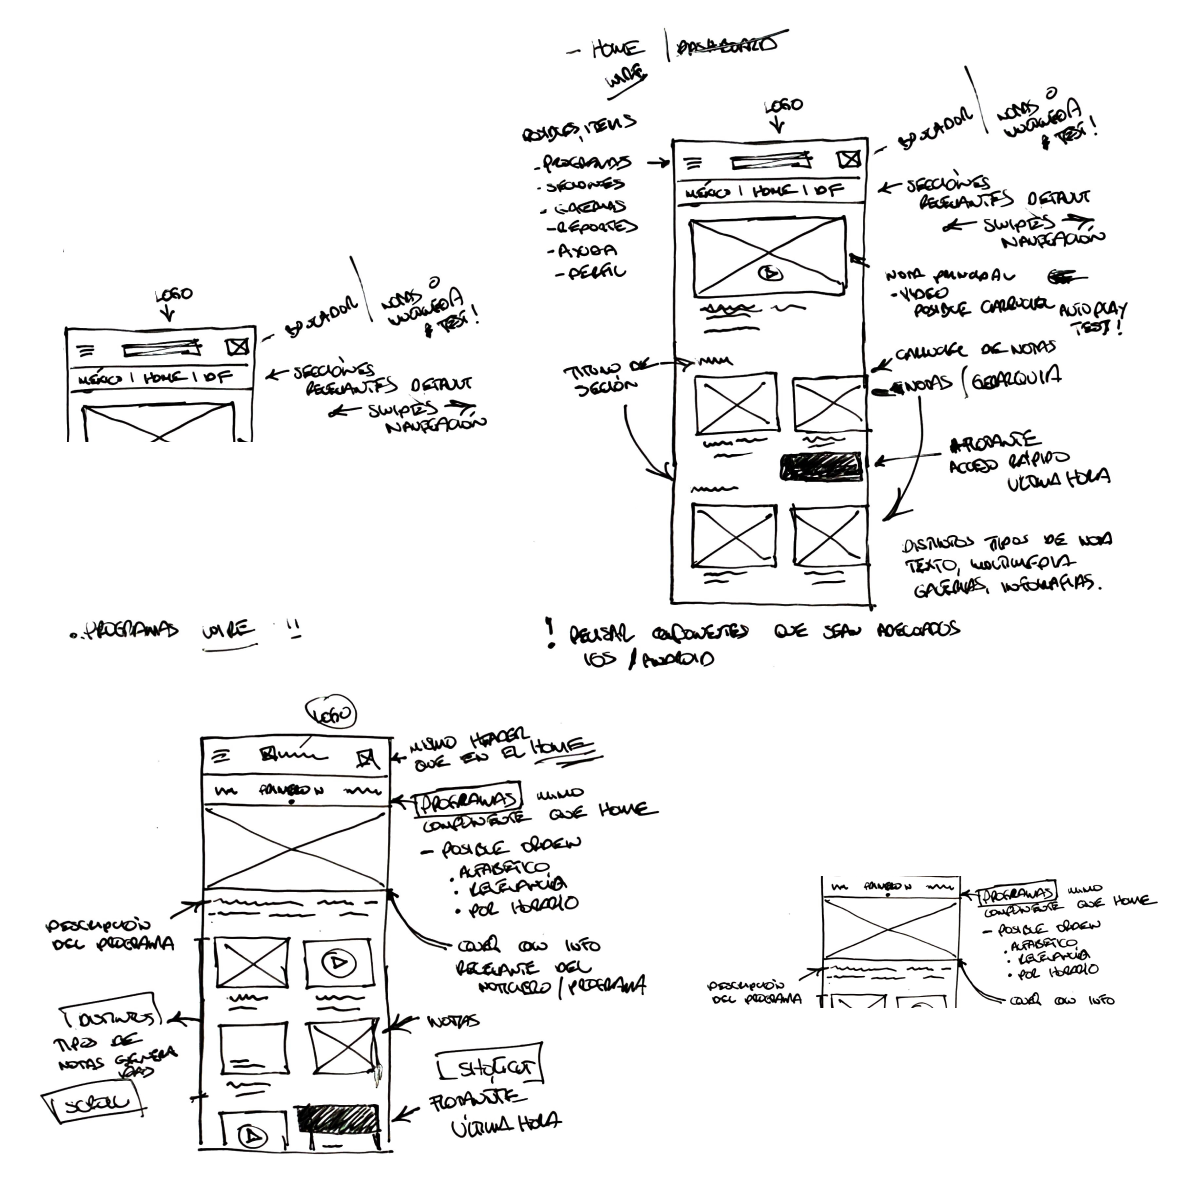 - HOME | DASHBOARD
WIRE
LOGO
POSIBLES ITEMS
- PROGRAMAS
- SECCIONES
- GALERIAS
- REPORTES
- AYUDA
- PERFIL
MÉXICO | HOME | DF
BUSCADOR / NOTAS Ó
BUSQUEDA
& TEST!
← SECCIÓNES
RELEVANTES DEFAULT
← SWIPES →
NAVEGACIÓN
NOTA PRINCIPAL
- VIDEO
POSIBLE CARRUCEL AUTOPLAY
TEST!
TITULO DE
SECCIÓN
CARRUCEL DE NOTAS
NOTAS / GERARQUIA
FLOTANTE
ACCESO RÁPIDO
ULTIMA HORA
DISTINTOS TIPOS DE NOTA
TEXTO, MULTIMEDIA
GALERIAS, INFOGRAFIAS.
! REVISAR COMPONENTES QUE SEAN ADECUADOS
IOS / ANDROID
LOGO
MÉXICO | HOME | DF
BUSCADOR / NOTAS Ó
BUSQUEDA
& TEST!
← SECCIÓNES
RELEVANTES DEFAULT
← SWIPES →
NAVEGACIÓN
. PROGRAMAS WIRE !!
LOGO
MISMO HEADER
QUE EN EL HOME
PROGRAMAS MISMO
COMPONENTE QUE HOME
- POSIBLE ORDEN
• ALFABETICO
• RELEVANCIA
• POR HORARIO
DESCRIPCIÓN
DEL PROGRAMA
COVER CON INFO
RELEVANTE DEL
NOTICIERO / PROGRAMA
DISTINTOS
TIPOS DE
NOTAS
SCROLL
NOTAS
FLOTANTE
ÚLTIMA HORA
PROGRAMAS MISMO
COMPONENTE QUE HOME
- POSIBLE ORDEN
• ALFABETICO
• RELEVANCIA
• POR HORARIO
DESCRIPCIÓN
DEL PROGRAMA
COVER CON INFO